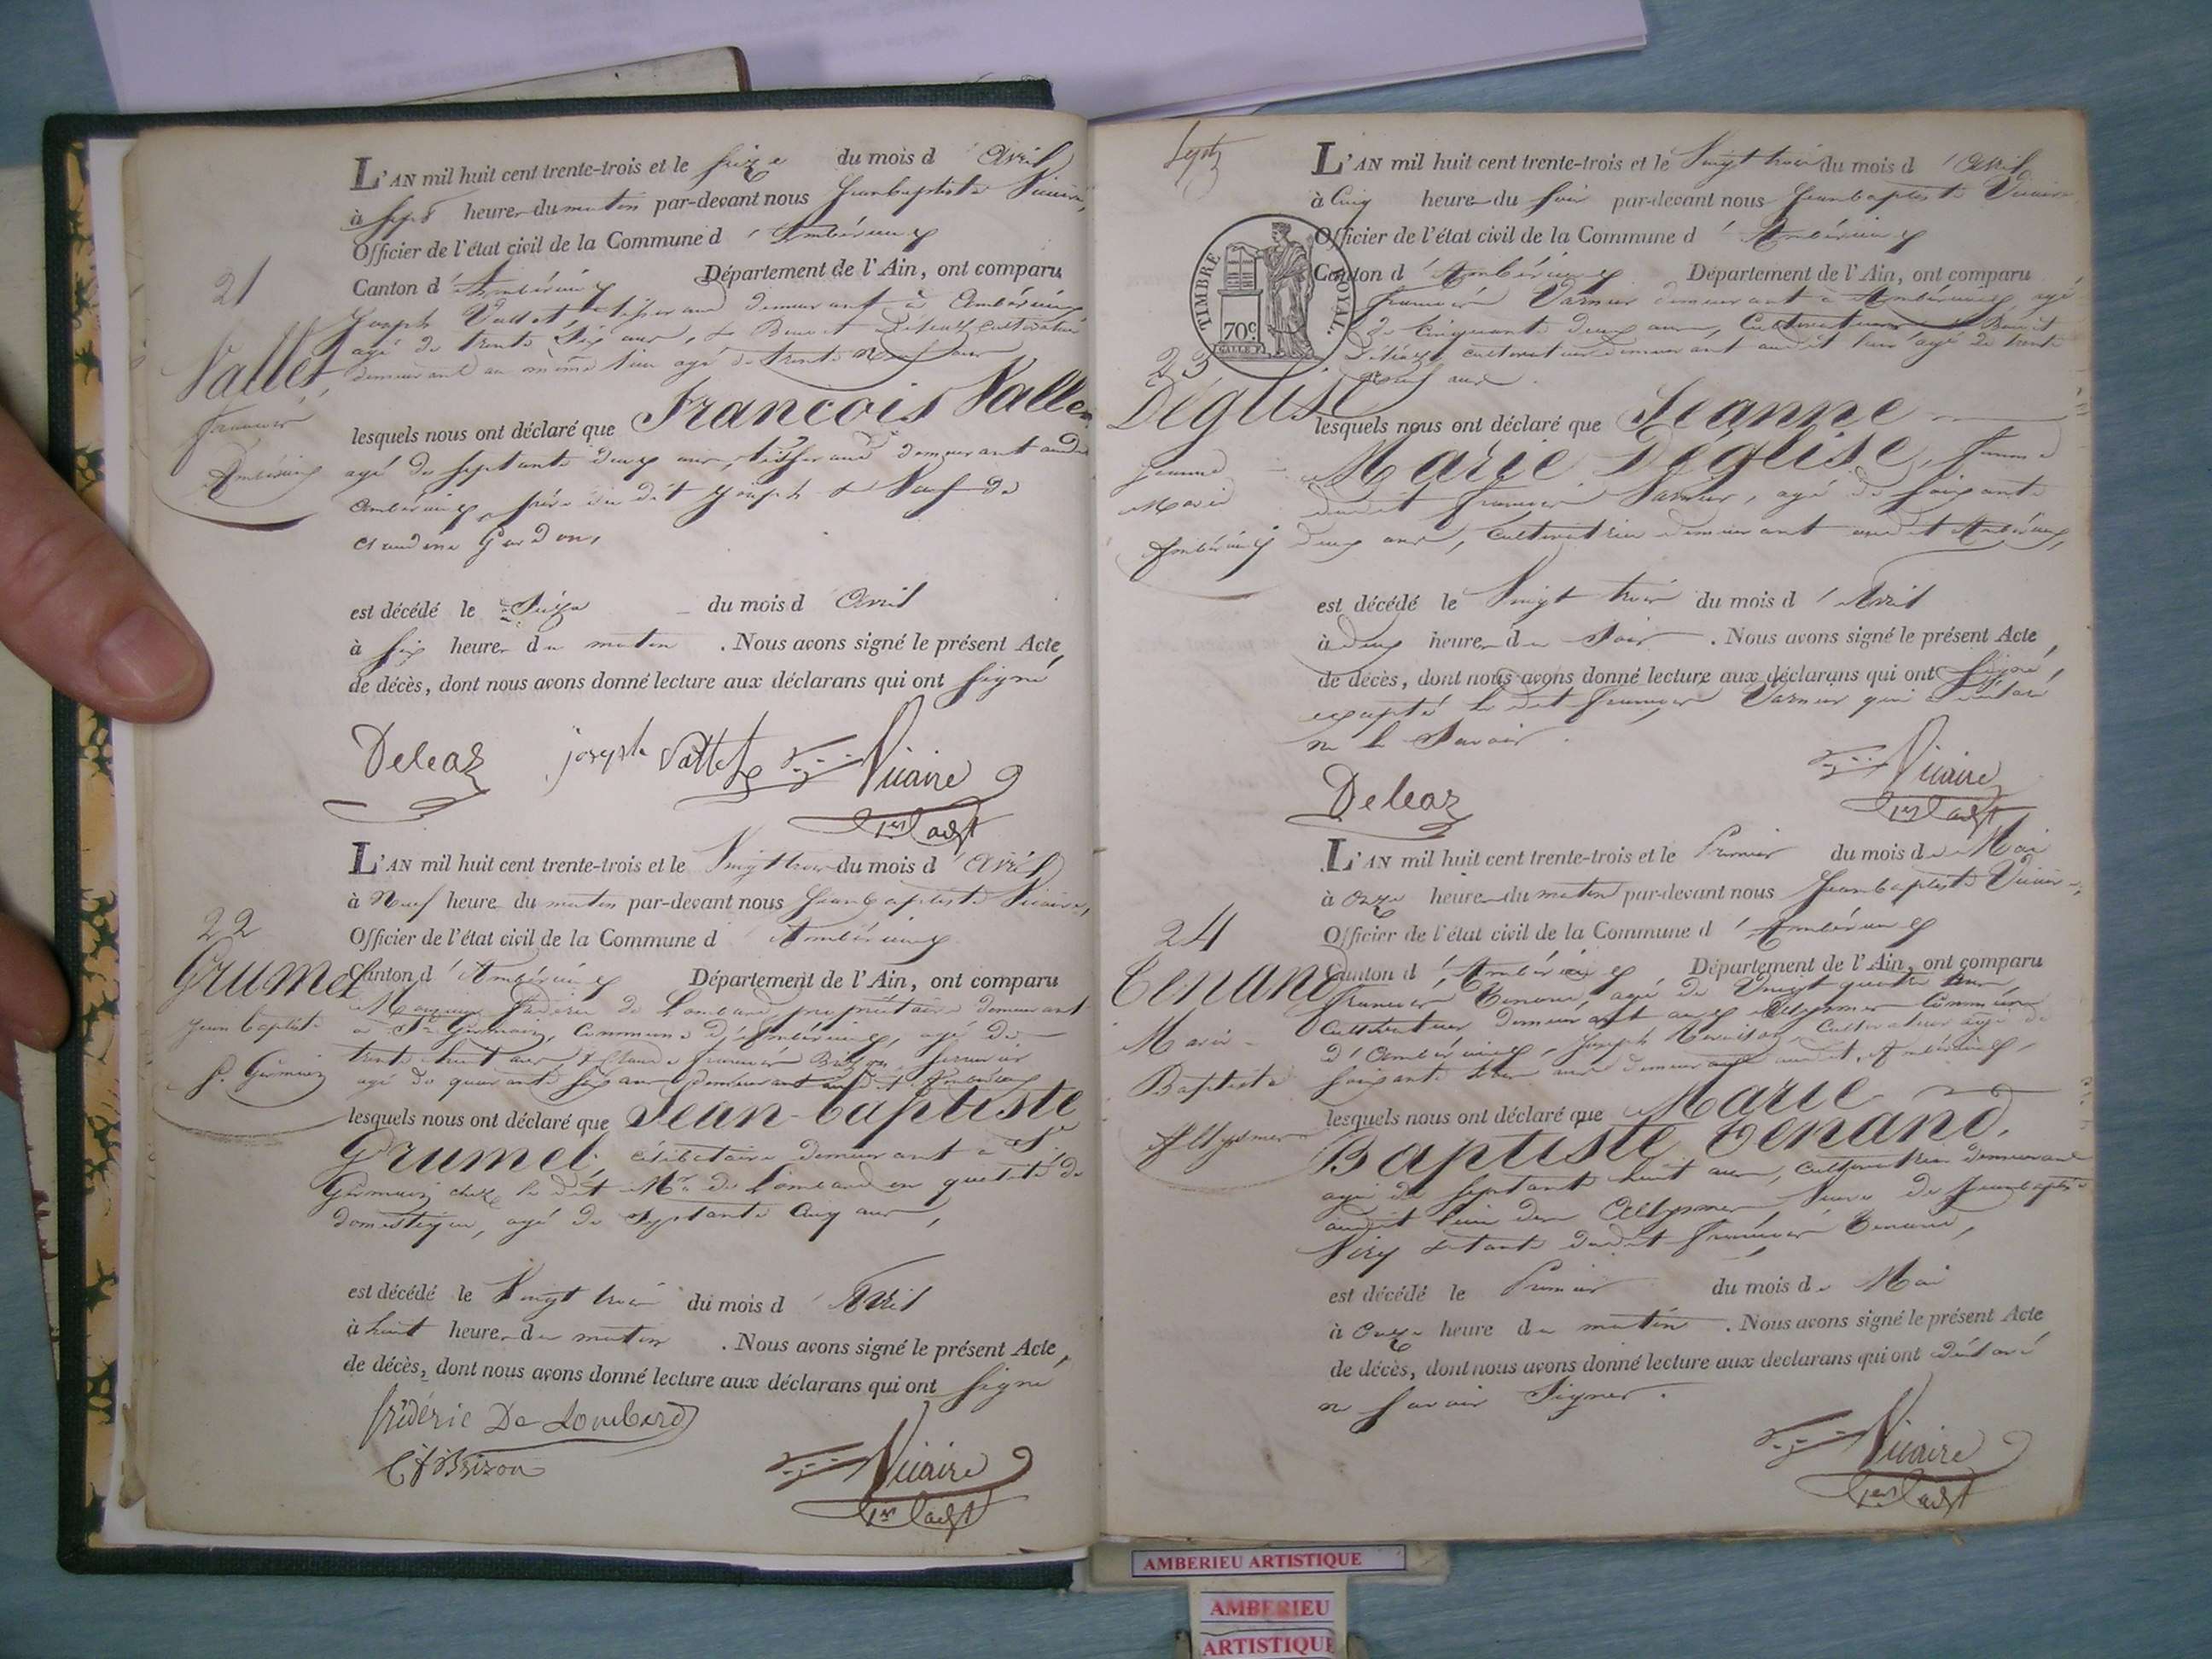 21
Vallet
François
Ambérieux
L'AN mil huit cent trente-trois et le seize du mois d'Avril
à sept heures du matin par-devant nous Jean baptiste Vicaire,
Officier de l'état civil de la Commune d'Ambérieux
Canton d'Ambérieux Département de l'Ain, ont comparu
Joseph Vallet, tisserand demeurant à Ambérieux
agé de trente six ans, & Benoit Deleaz cultivateur
demeurant au même lieu agé de trente neuf ans
lesquels nous ont déclaré que François Vallet
agé de septante deux ans, tisserand demeurant audit
Ambérieux, père du dit Joseph & Veuf de
Claudine Gardon,
est décédé le Seize du mois d'Avril
à six heures du matin . Nous avons signé le présent Acte
de décès, dont nous avons donné lecture aux déclarans qui ont signé
Deleaz joseph Vallet Vicaire
1er adjt
22
Grumet
Jean baptiste
St. Germain
L'AN mil huit cent trente-trois et le Vingt trois du mois d'Avril
à Neuf heures du matin par-devant nous Jean baptiste Vicaire,
Officier de l'état civil de la Commune d'Ambérieux
Canton d'Ambérieux Département de l'Ain, ont comparu
Frédéric de Lombard propriétaire demeurant
à St. Germain, Commune d'Ambérieux, agé de
trente huit ans & Claude François Brizon,
agé de quarante six ans demeurant audit Ambérieux
lesquels nous ont déclaré que Jean-baptiste
Grumet, célibataire demeurant à St.
Germain chez le dit Mr. de Lombard en qualité de
domestique, agé de septante cinq ans,
est décédé le Vingt trois du mois d'Avril
à huit heures du matin . Nous avons signé le présent Acte
de décès, dont nous avons donné lecture aux déclarans qui ont signé
frédéric De Lombard
C f Brizon Vicaire
1er adjt
TIMBRE ROYAL.
70c.
23
Déglise
Jeanne
Marie
Ambérieux
L'AN mil huit cent trente-trois et le Vingt trois du mois d'Avril
à Cinq heures du soir par-devant nous Jean baptiste Vicaire
Officier de l'état civil de la Commune d'Ambérieux
Canton d'Ambérieux Département de l'Ain, ont comparu
François Varnier demeurant à Ambérieux, agé
de Cinquante deux ans, Cultivateur & Benoit
Deleaz, cultivateur demeurant audit lieu agé de trente
neuf ans.
lesquels nous ont déclaré que Jeanne
Marie Déglise, femme
dudit François Varnier, agé de soixante
deux ans, cultivatrice demeurant audit Ambérieux,
est décédé le Vingt trois du mois d'Avril
à deux heures du Soir . Nous avons signé le présent Acte
de décès, dont nous avons donné lecture aux déclarans qui ont signé,
excepté le dit François Varnier qui a déclaré
ne le Savoir.
Deleaz Vicaire
1er adjt
24
Tenand
Marie
Baptiste
L'AN mil huit cent trente-trois et le Premier du mois de Mai
à onze heures du matin par-devant nous Jean baptiste Vicaire,
Officier de l'état civil de la Commune d'Ambérieux
Canton d'Ambérieux Département de l'Ain, ont comparu
François Tenand, agé de Vingt quatre ans
Cultivateur demeurant aux Commune
d'Ambérieux, Joseph Cultivateur agé de
soixante ans demeurant audit Ambérieux,
lesquels nous ont déclaré que Marie
Baptiste Tenand,
agé de septante huit ans, cultivatrice demeurant
audit lieu des Veuve de Jean baptiste
Viry & tante dudit François Tenand,
est décédé le Premier du mois de Mai
à onze heure du matin . Nous avons signé le présent Acte
de décès, dont nous avons donné lecture aux declarans qui ont déclaré
ne savoir Signer.
Vicaire
1er adjt
AMBERIEU ARTISTIQUE
AMBERIEU
ARTISTIQUE